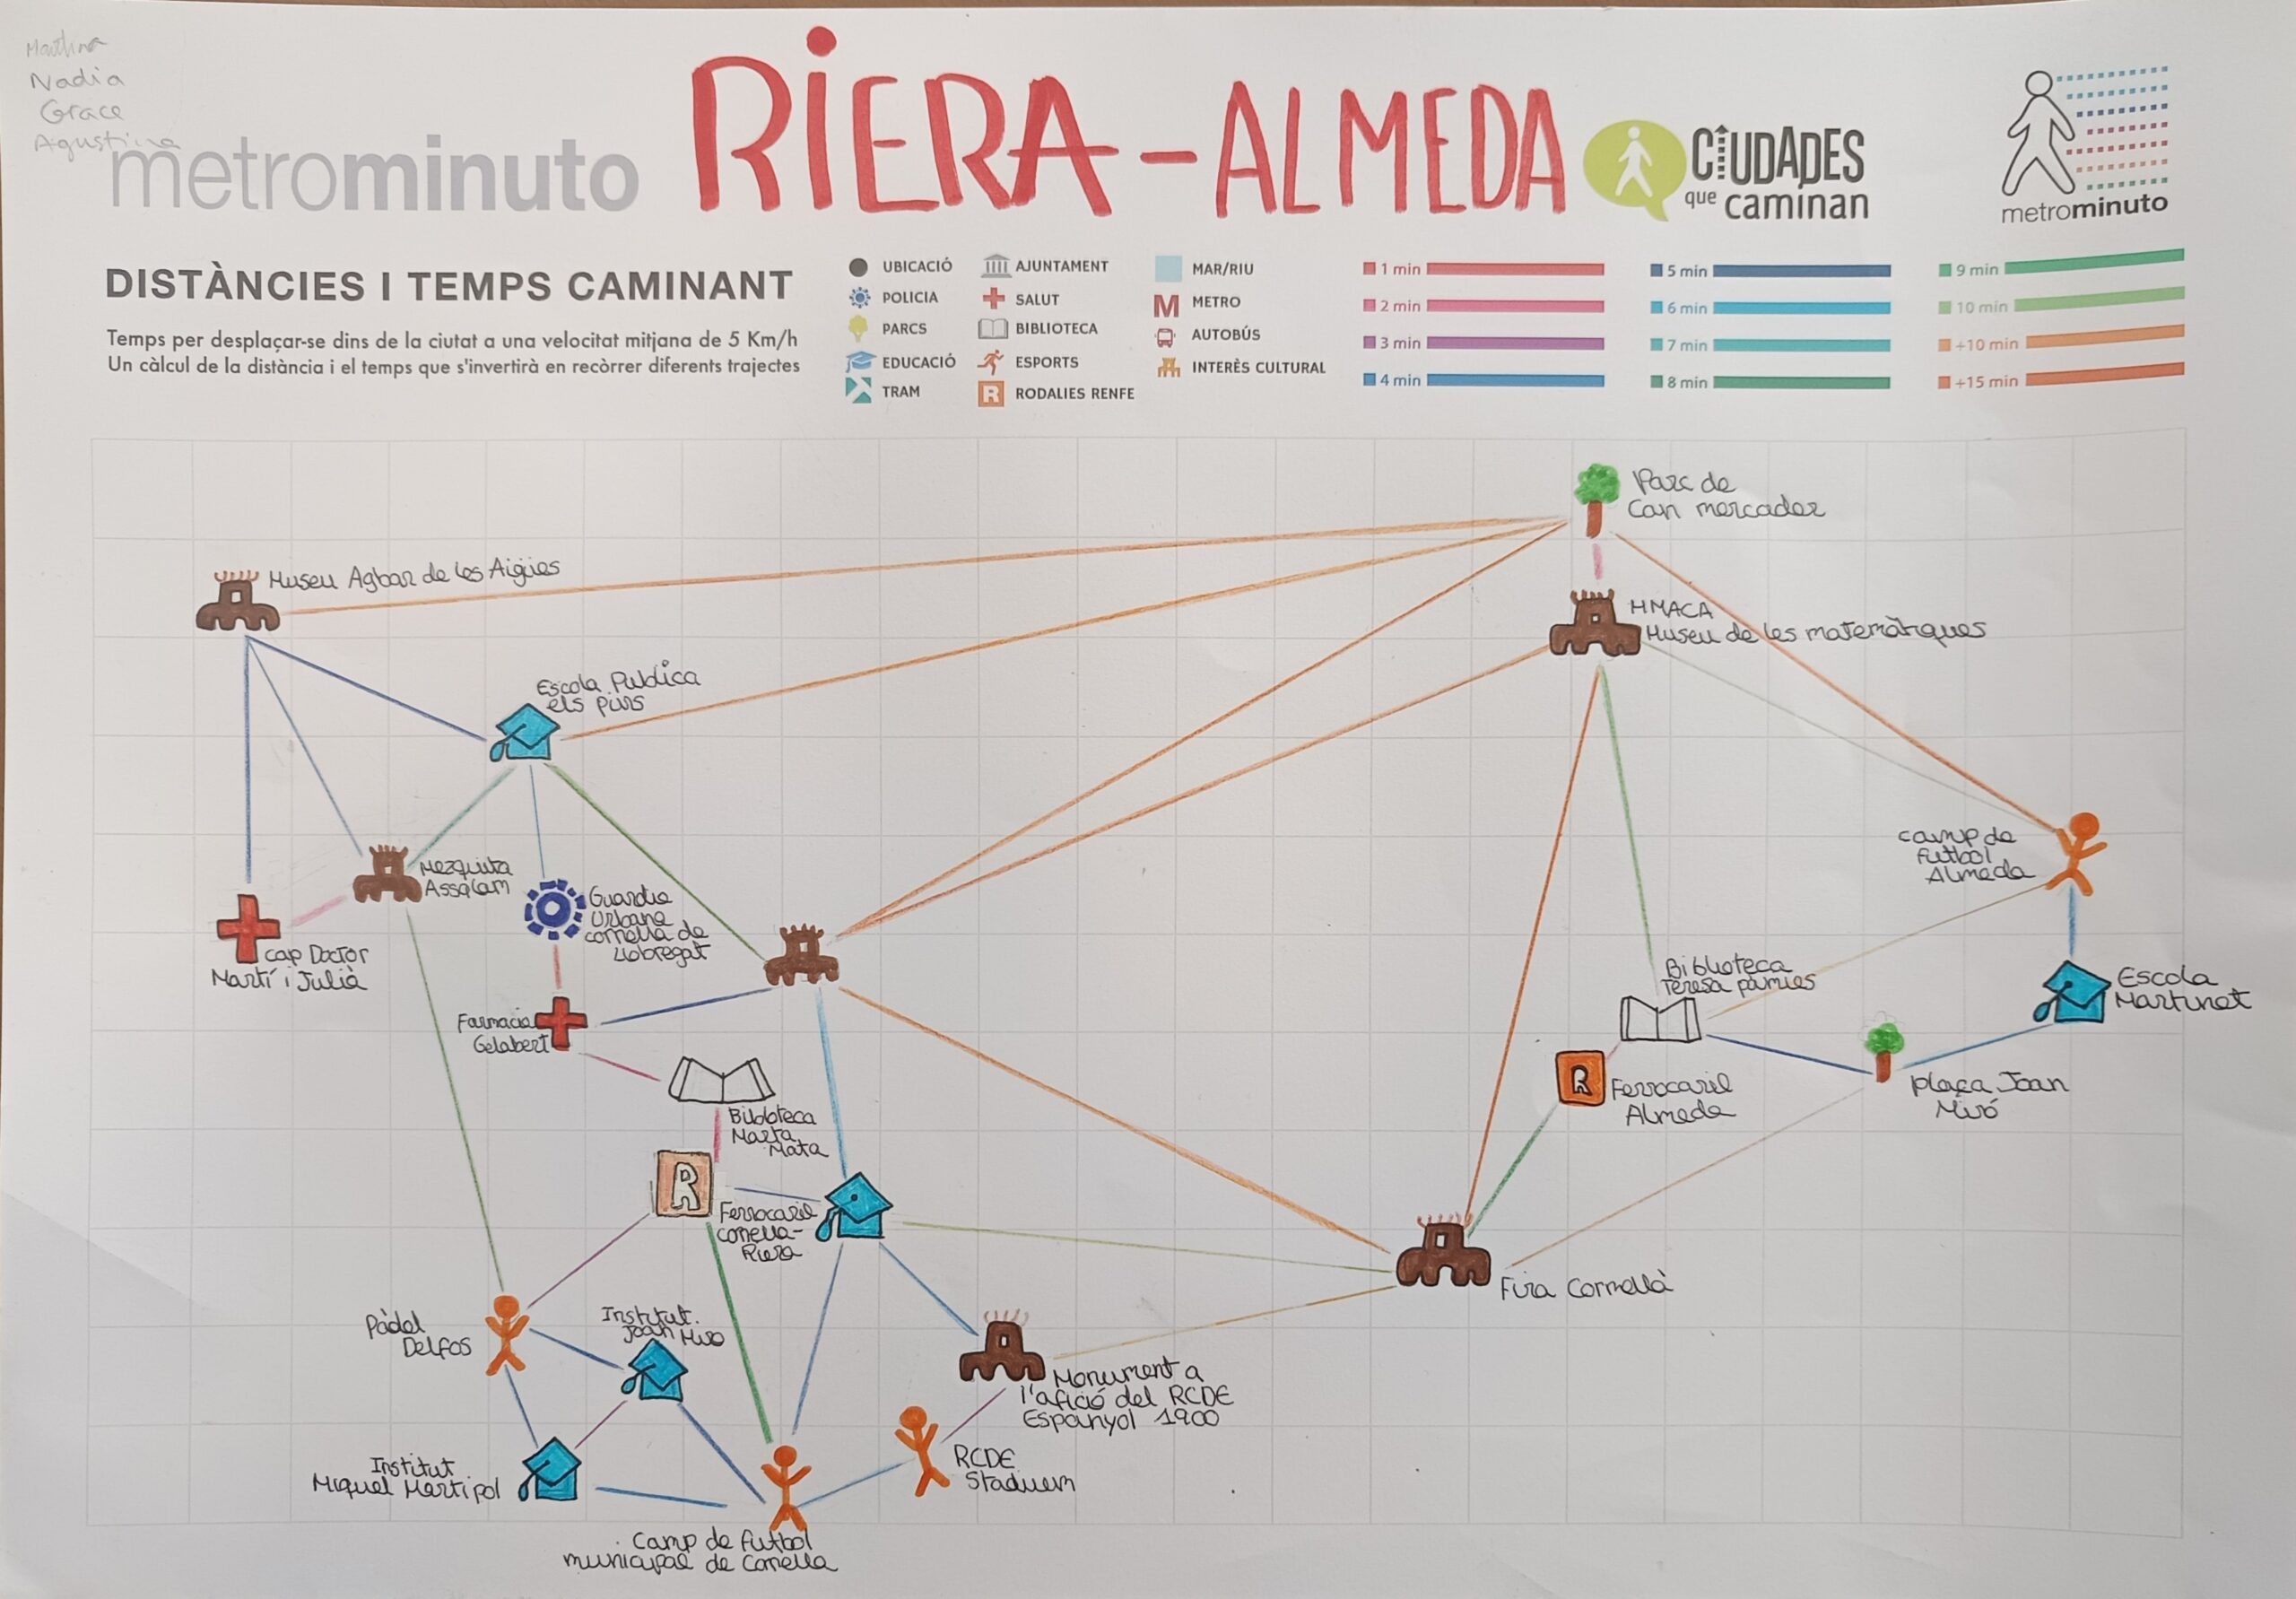 Martina
Nadia
Grace
Agustina
metrominuto
RiERA-ALMEDA
CiUDADES
que caminan
metrominuto
DISTÀNCIES I TEMPS CAMINANT
Temps per desplaçar-se dins de la ciutat a una velocitat mitjana de 5 Km/h
Un càlcul de la distància i el temps que s'invertirà en recòrrer diferents trajectes
UBICACIÓ
POLICIA
PARCS
EDUCACIÓ
TRAM
AJUNTAMENT
SALUT
BIBLIOTECA
ESPORTS
R RODALIES RENFE
MAR/RIU
M METRO
AUTOBÚS
INTERÈS CULTURAL
1 min
2 min
3 min
4 min
5 min
6 min
7 min
8 min
9 min
10 min
+10 min
+15 min
Parc de
Can mercader
Museu Agbar de les Aigües
MMACA
Museu de les matemàtiques
Escola Publica
els pins
camp de
futbol
Almeda
Mezquita
Assalam
Guardia
Urbana
cornella de
Llobregat
cap Doctor
Martí i Julià
Biblioteca
Teresa pàmies
Escola
Martinet
Farmacia
Gelabert
R
Ferrocaril
Almeda
plaça Joan
Miró
Biblioteca
Marta
Mata
R
Ferrocaril
cornella-
Riera
Fira Cornellà
Pàdel
Delfos
Institut
Joan Miro
Monument a
l'afició del RCDE
Espanyol 1900
Institut
Miquel Martí pol
RCDE
Stadium
Camp de futbol
municipal de Cornella